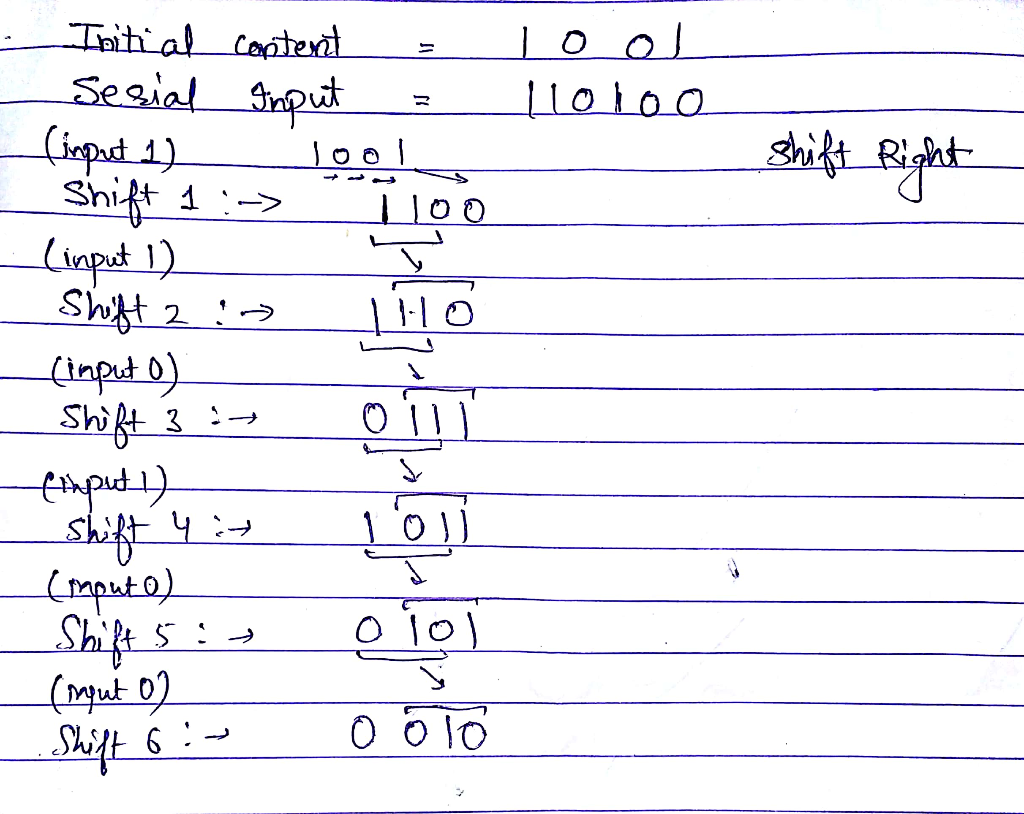 Initial content = 1 0 0 1
Serial Input = 110100
(input 1) 1001 Shift Right
Shift 1 :→ 1100
(input 1)
Shift 2 :→ 1110
(input 0)
Shift 3 :→ 0111
(input 1)
Shift 4 :→ 1011
(input 0)
Shift 5 :→ 0101
(input 0)
Shift 6 :→ 0010